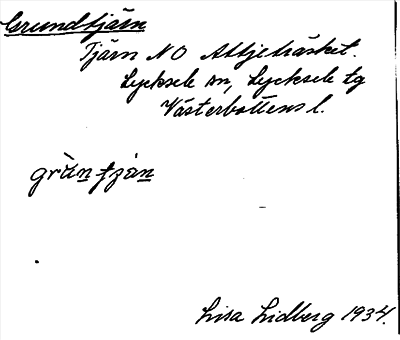 Grundtjärn
Tjärn NO Attjeträsket.
Lycksele sn, Lycksele tg
Västerbottens l.
grùn-tjàn
Lisa Lidberg 1934.